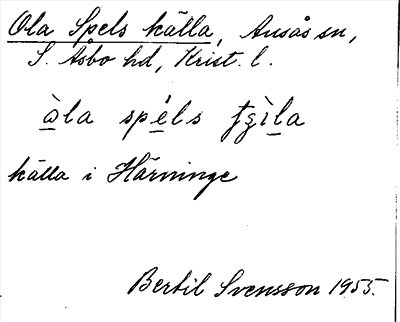 Ola Spels källa, Ausås sn,
S. Åsbo hd, Krist. l.
àla spéls
källa i Härninge
Bertil Svensson 1955.